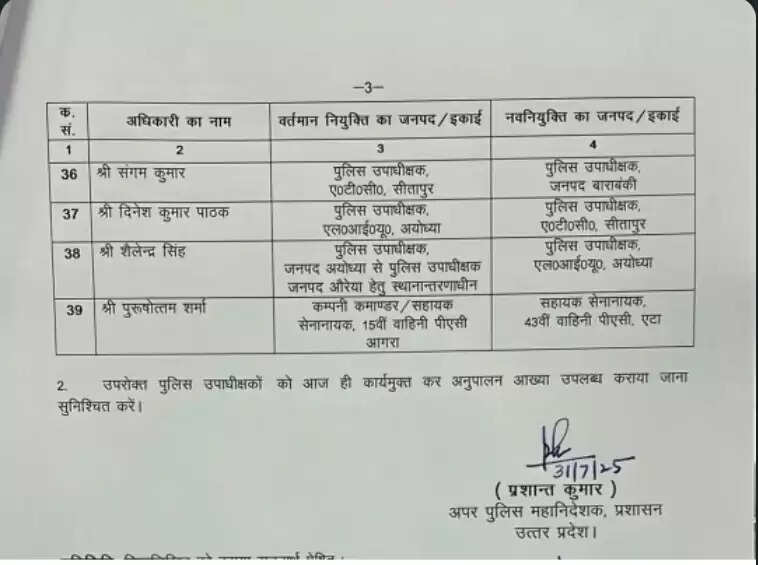 —3—
क. सं. अधिकारी का नाम वर्तमान नियुक्ति का जनपद/इकाई नवनियुक्ति का जनपद/इकाई
1 2 3 4
36 श्री संगम कुमार पुलिस उपाधीक्षक, पुलिस उपाधीक्षक,
ए0टी0सी0, सीतापुर जनपद बाराबंकी
37 श्री दिनेश कुमार पाठक पुलिस उपाधीक्षक, पुलिस उपाधीक्षक,
एल0आई0यू0, अयोध्या ए0टी0सी0, सीतापुर
38 श्री शैलेन्द्र सिंह पुलिस उपाधीक्षक, पुलिस उपाधीक्षक,
जनपद अयोध्या से पुलिस उपाधीक्षक एल0आई0यू0, अयोध्या
जनपद औरेया हेतु स्थानान्तरणाधीन
39 श्री पुरूषोत्तम शर्मा कम्पनी कमाण्डर/सहायक सहायक सेनानायक,
सेनानायक, 15वीं वाहिनी पीएसी 43वीं वाहिनी पीएसी, एटा
आगरा
2. उपरोक्त पुलिस उपाधीक्षकों को आज ही कार्यमुक्त कर अनुपालन आख्या उपलब्ध कराया जाना
सुनिश्चित करें।
31/7/25
( प्रशान्त कुमार )
अपर पुलिस महानिदेशक, प्रशासन
उत्तर प्रदेश।